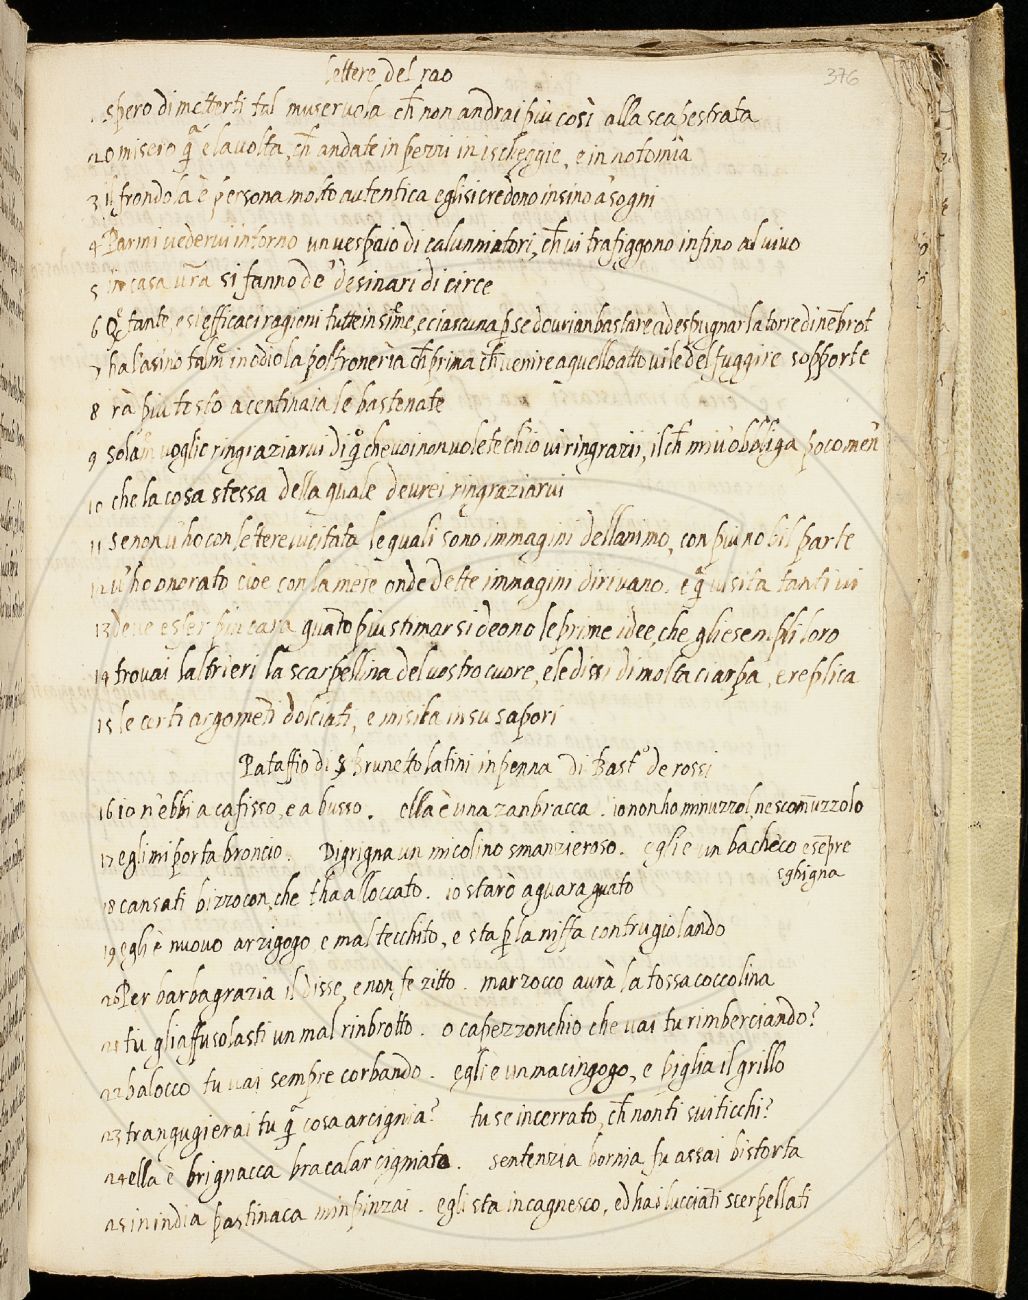 lettere del rao
376
1 spero di metterti tal museruola ch̄ non andrai più così alla scapestrata
2 o misero q̄ è la volta, ch̄ andate in pezzi in ischeggie, e in notomia
3 il frondola è persona molto autentica e gli si credono insino a' sogni
4 Parmi vedervi intorno un vespaio di calunniatori, ch̄ vi trafiggono infino al vivo
5 in casa vr̄a si fanno de' desinari di circe
6 tante, e sì efficaci ragioni tutte insiēme, e ciascuna p̱ se dovrian bastare ad espugnar la torre di nēbrot
7 ha l'asino talm̄ in odio la poltroneria ch̄ prima ch̄ venire a quello atto vile del fuggire sopporte
8 rà più tosto a centinaia le bastonate
9 solām voglio ringraziarvi di q̊ che voi non volete ch'io vi ringrazii, il ch̄ mi v'obbliga poco men̄
10 che la cosa stessa della quale devrei ringraziarvi
11 se non v'ho con lettere visitata le quali sono immagini dell animo, con più nobil parte
12 v'ho onorato cioe con la mēte onde dette immagini dirivano. e q̄ visita tanto vi
13 deve esser più cara quāto più stimar si deono le prime idee, che gli esempli loro
14 trovai l'altrieri la scarpellina del vostro cuore, e le dissi di molta ciarpa, e replica
15 le certi argomēti dolciati, e misika in su sapori
Pataffio di S Brunetto latini in penna di Bast.o de rossi
16 io n'ebbi a cafisso, e a busso. ella è una zanbracca. io non ho minuzzol, ne scomūzzolo
17 egli mi porta broncio. Digrigna un micolino smanzieroso. egli e un bachèco e sēpre
sghigna
18 cansati bizzocon, che t'ha alloccato. io starò a guaraguato
19 egli è nuovo arzigogo e mal tecchito, e sta p̱ la niffa contrugiolando
20 Per barbagrazia il disse, e non fe zitto. marzocco avrà la tossa coccolina
21 tu gli affusolasti un mal rinbrotto. o capezzonchio che vai tu rimberciando?
22 balocco tu vai sempre corbando. egli è un macingogo, e piglia il grillo
23 trangugierai tu q̄ cosa arcignia? tu se incerrato, ch̄ non ti sviticchi?
24 ella è brignacca bracalarcigniata. sentenzia bornia fu assai bistorta
25 in india pastinaca minpinzai. egli sta in cagnesco, ed ha i lucciāti scerpellati